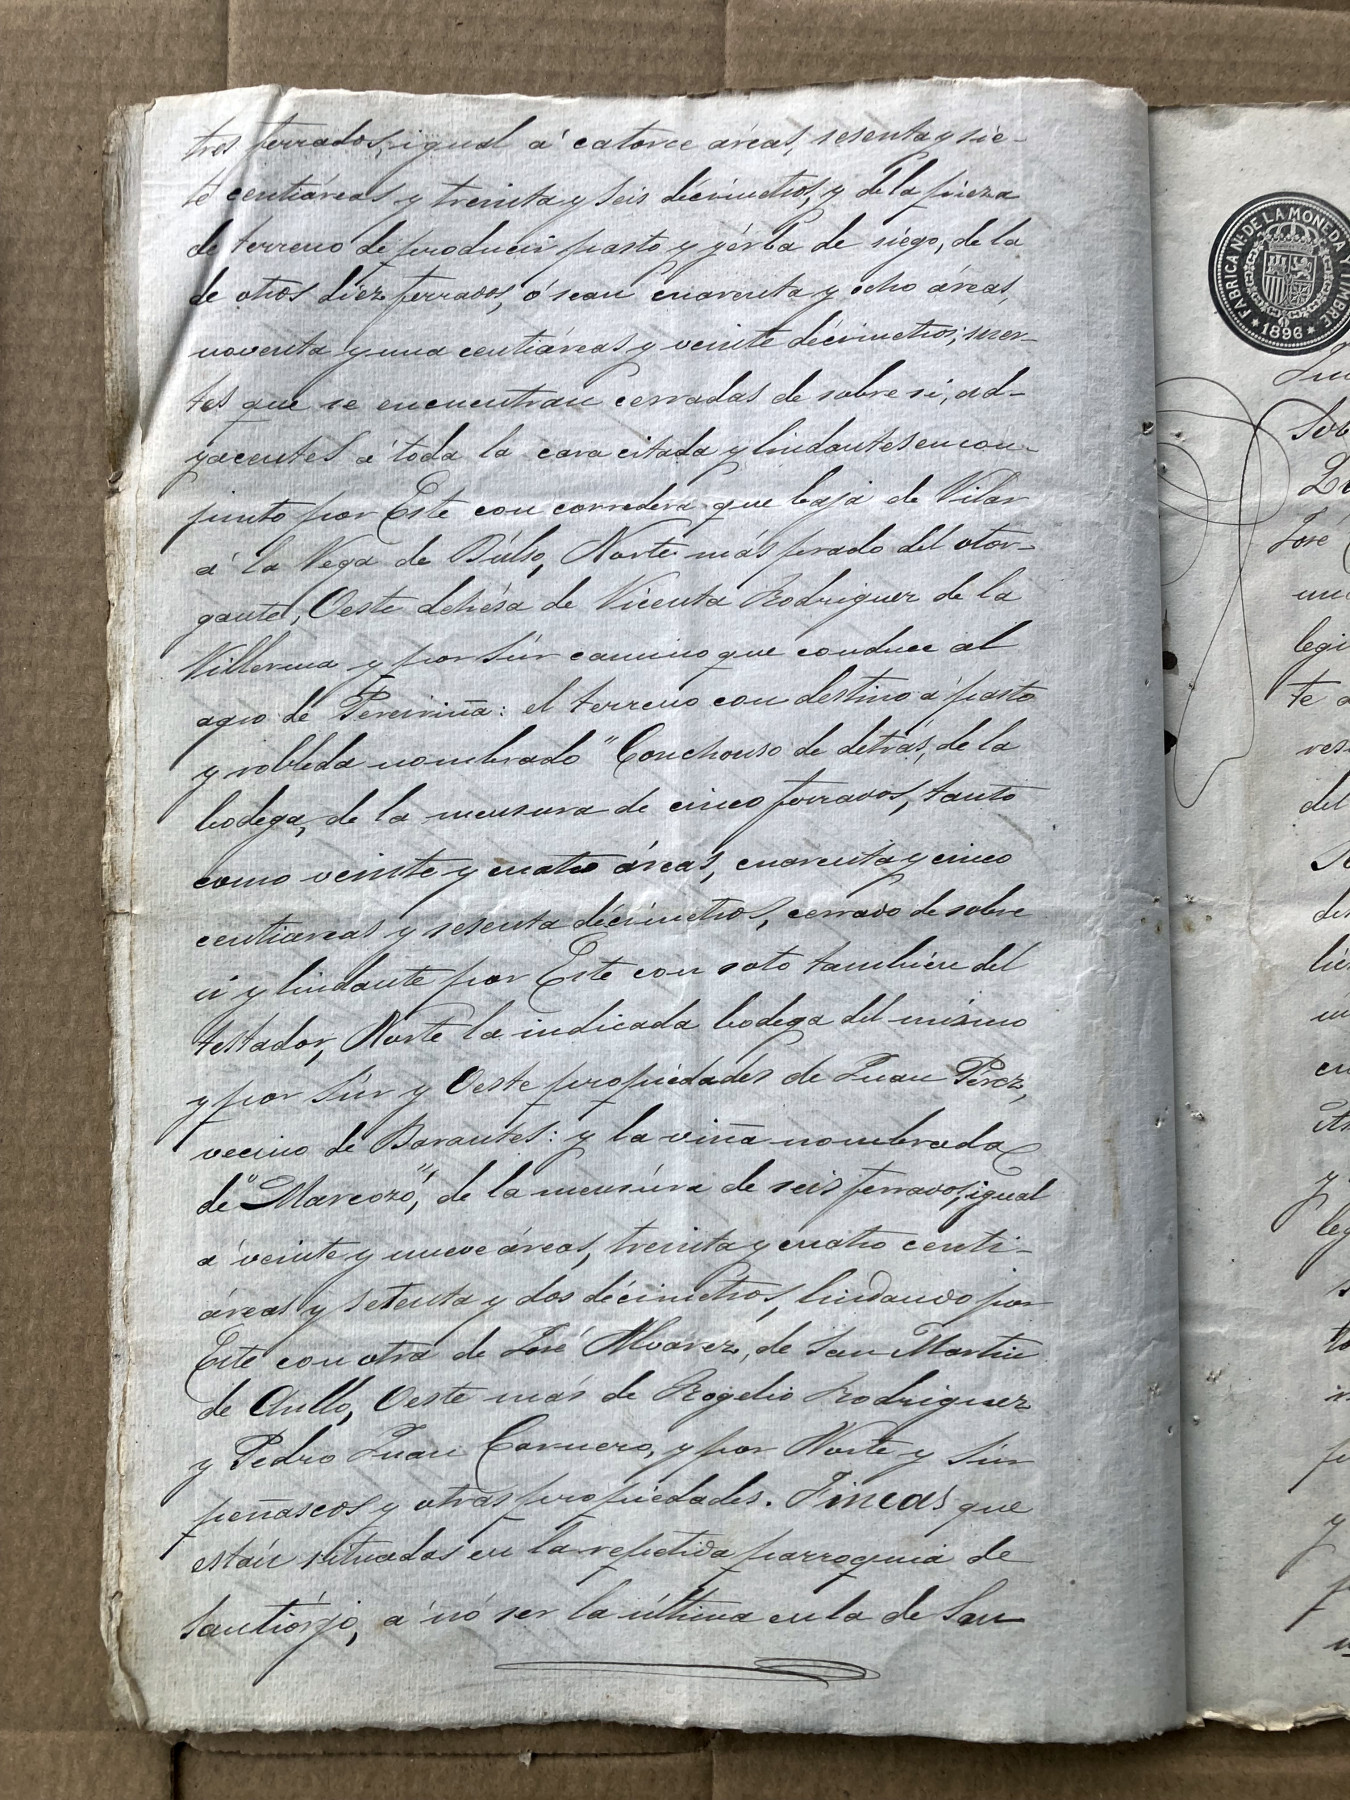 tres ferrados, igual á catorce áreas, sesenta y sie-
te centiáreas y treinta y seis décimetros, y de la pieza
de terreno de producir pasto y yérba de siégo, de la
de otros diez ferrados, ó sean cuarenta y ocho áreas,
noventa y una centiáreas y veinte décimetros; suer-
tes que se encuentran cerradas de sobre si, ad-
yacentes á toda la casa citada y lindantes en con-
junto por Este con corredera que baja de Vilar
á la Vega de Norte más prado del otor-
gante, Oeste dehésa de Vicenta Rodriguez de la
y por Súr camino que conduce al
agro de Pereiriña: el terreno con destino á pasto
y robleda nombrado "Conchouso de detrás, de la
bodega, de la mensura de cinco ferrados, tanto
como veinte y cuatro áreas, cuarenta y cinco
centiáreas y sesenta décimetros, cerrado de sobre
si y lindante por Este con soto tambien del
testador, Norte la indicada bodega del mismo
y por Súr y Oeste propiedades de Juan Perez,
vecino de Barantes: y la viña nombrada
de "Marcozó", de la mensúra de seis ferrados, igual
á veinte y nueve áreas, treinta y cuatro centi-
áreas y setenta y dos décimetros, lindando por
Este con otra de José Alvarez, de San Martin
de Oeste más de Rogelio Rodriguez
y Pedro Juan y por Norte y Súr
peñascos y otras propiedades. Fincas que
están situadas en la repetida parroquia de
Santiórjo, á nó ser la última en la de San
FABRICA Nl. DE LA MONEDA Y TIMBRE
* 1896 *
José